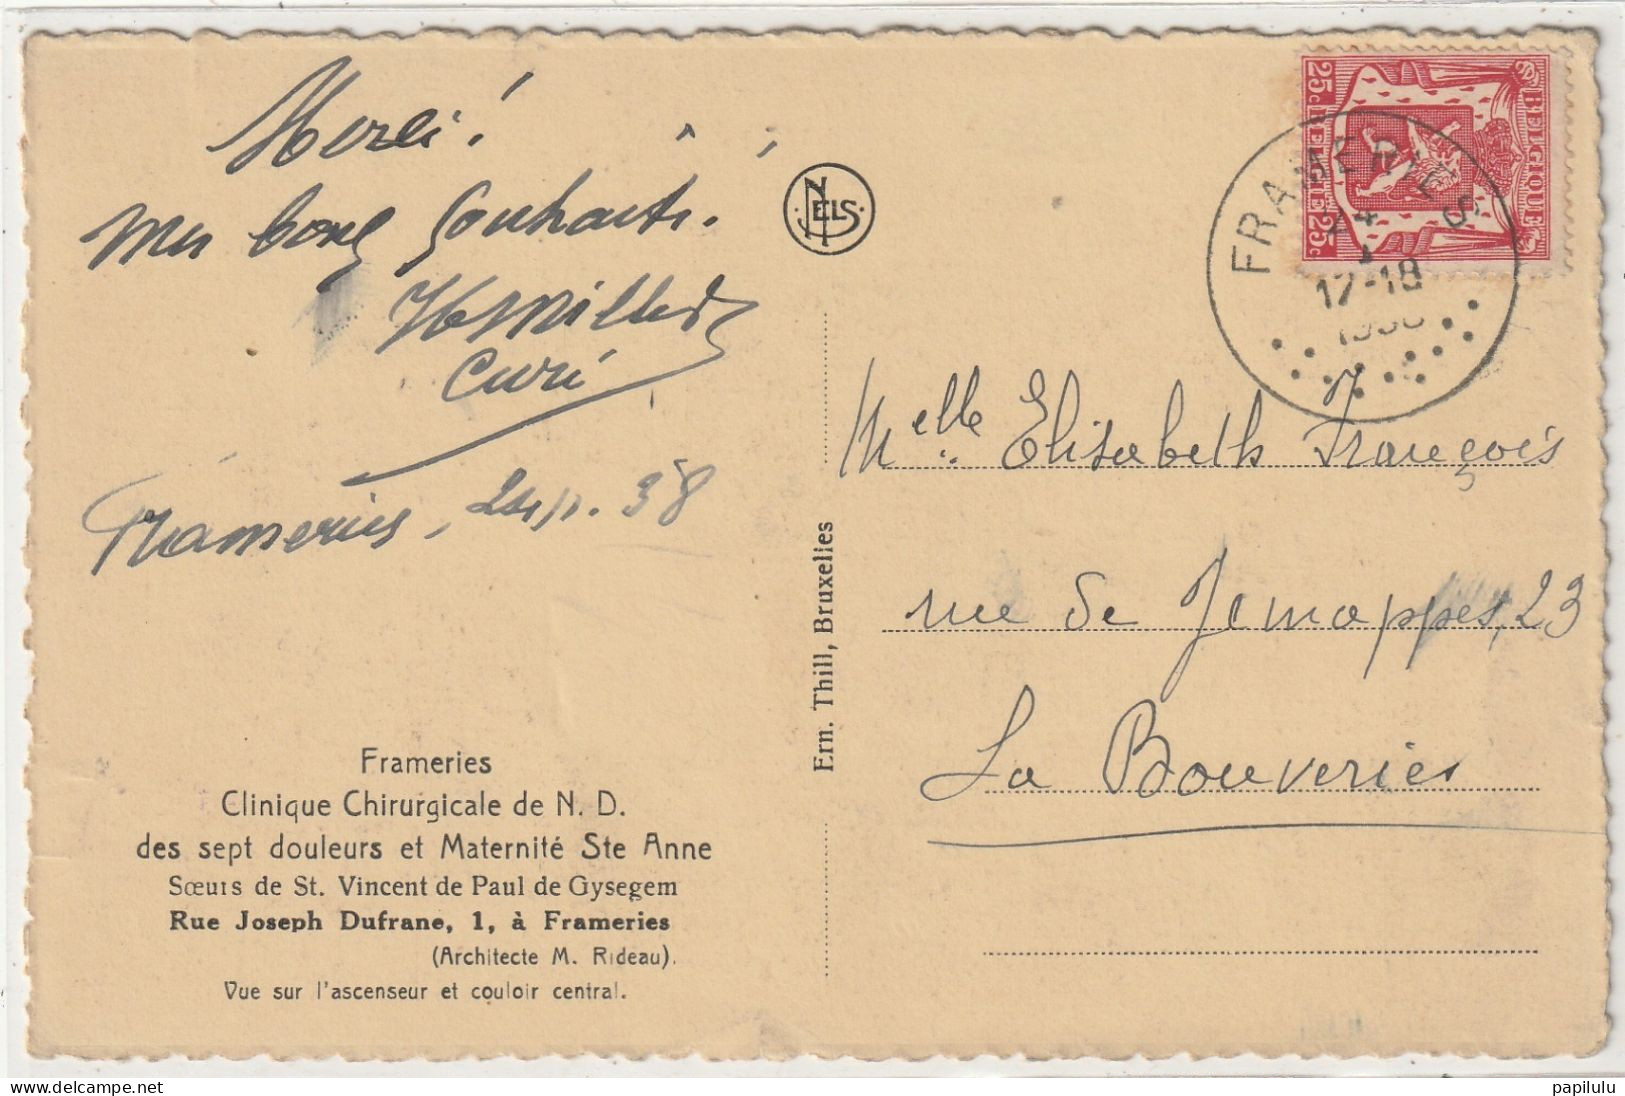 Merci!
Mes bons souhaits.
Curé
Frameries, 24/1.38
NELS
BELGIQUE
25c
25c
FRAMERIES
24
1
17-18
1938
Melle Elisabeth François
rue de Jemappes, 23
La Bouverie
Ern. Thill, Bruxelles
Frameries
Clinique Chirurgicale de N. D.
des sept douleurs et Maternité Ste Anne
Sœurs de St. Vincent de Paul de Gysegem
Rue Joseph Dufrane, 1, à Frameries
(Architecte M. Rideau).
Vue sur l'ascenseur et couloir central.
papilulu